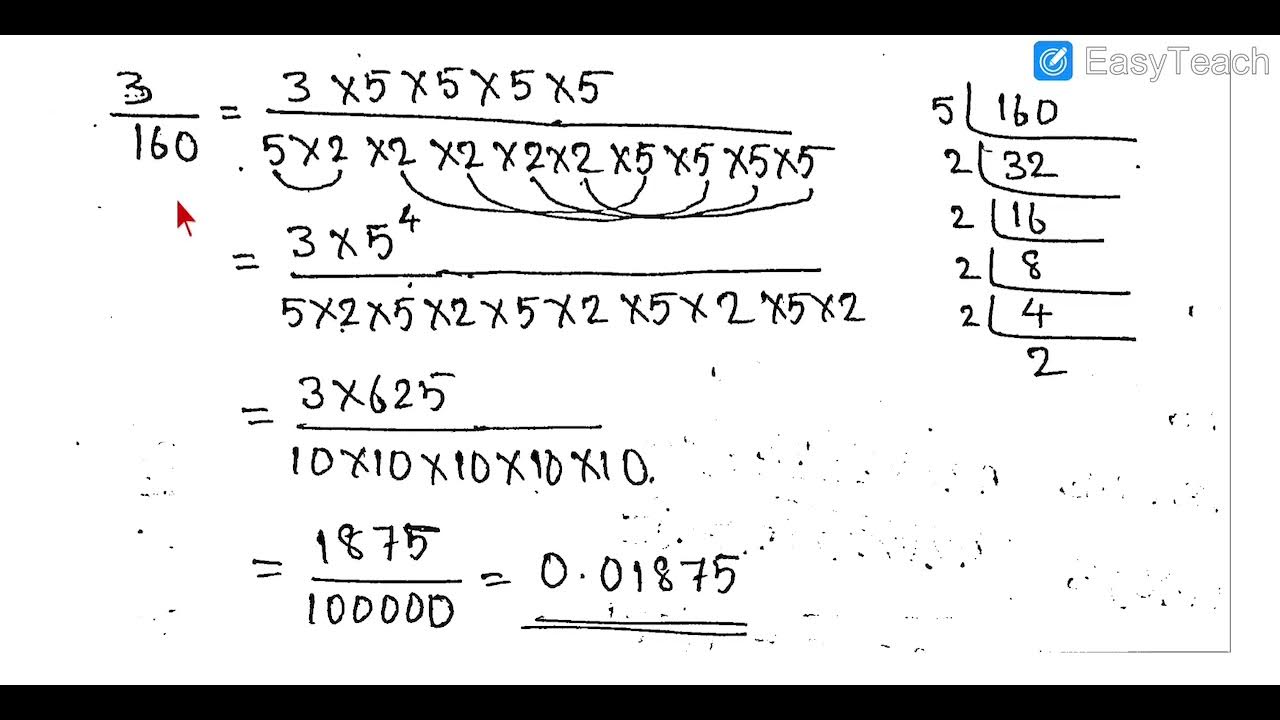 EasyTeach
3/160 = (3 × 5 × 5 × 5 × 5)/(5 × 2 × 2 × 2 × 2 × 2 × 5 × 5 × 5 × 5)
= (3 × 5⁴)/(5 × 2 × 5 × 2 × 5 × 2 × 5 × 2 × 5 × 2)
= (3 × 625)/(10 × 10 × 10 × 10 × 10.)
= 1875/100000 = 0.01875
5 | 160
2 | 32
2 | 16
2 | 8
2 | 4
2